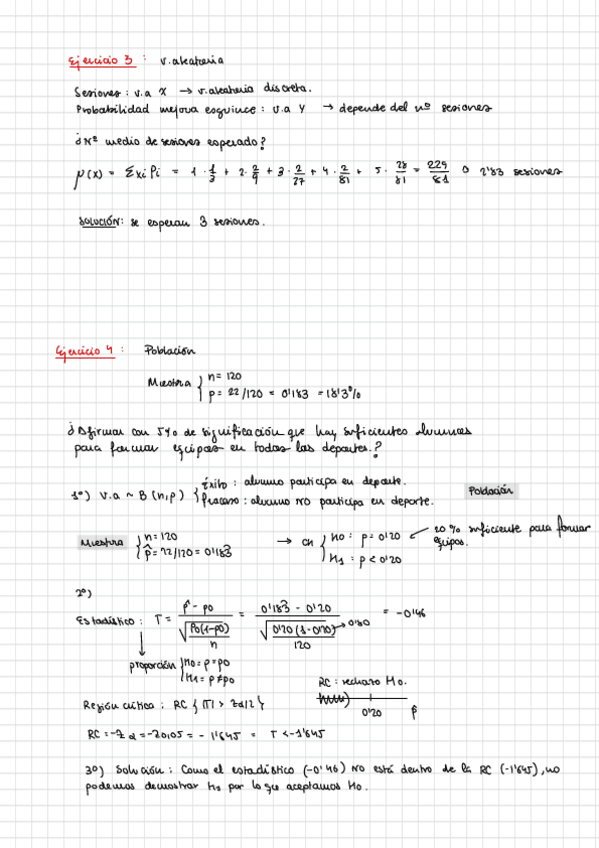 Ejercicio 3 : v.aleatoria
Sesiones : v.a X → v.aleatoria discreta.
Probabilidad mejora esguince : v.a Y → depende del nº sesiones
¿Nº medio de sesiones esperado?
μ(x) = Σxi Pi = 1 · 1/3 + 2 · 2/9 + 3 · 2/27 + 4 · 2/81 + 5 · 28/81 = 229/81 ≈ 2'83 sesiones
SOLUCIÓN: se esperan 3 sesiones.
Ejercicio 4 : Población
Muestra { n = 120
p = 22/120 = 0'183 = 18'3%
¿Afirman con 5% de significación que hay suficientes alumnas
para formar equipos en todos los deportes?
1º) v.a ~ B (n,p) { Éxito : alumno participa en deporte.
Fracaso : alumno NO participa en deporte.
Población
Muestra { n = 120
p̂ = 22/120 = 0'183
→ CH { H0 : p = 0'20
H1 : p < 0'20
20% suficiente para formar
equipos.
2º)
Estadístico : T = p̂ - p0 / √(p0(1-p0)/n) = 0'183 - 0'20 / √(0'20(1-0'20)/120) = -0'46
→ 0'80
proporción { H0 = p = p0
H1 = p ≠ p0
RC : rechazo H0.
0'20 p̂
Región crítica : RC { |T| > Zα/2 }
RC = -Z α = -Z0,05 = - 1'645 = T < -1'645
3º) Solución : Como el estadístico (-0'46) NO está dentro de la RC (-1'645), no
podemos demostrar H1 por lo que aceptamos H0.